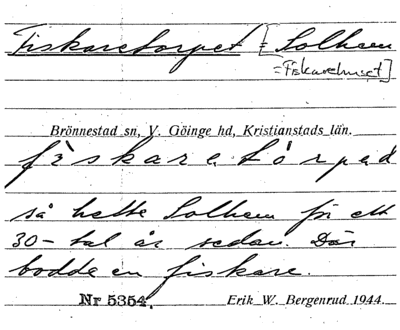 Fiskaretorpet [= Solhem
= Fiskarehuset]
Brönnestad sn, V. Göinge hd, Kristianstads län.
fiskaretórpəd
så hette Solhem för ett
30-tal år sedan. Där
bodde en fiskare.
Nr 5354. Erik W. Bergenrud 1944.